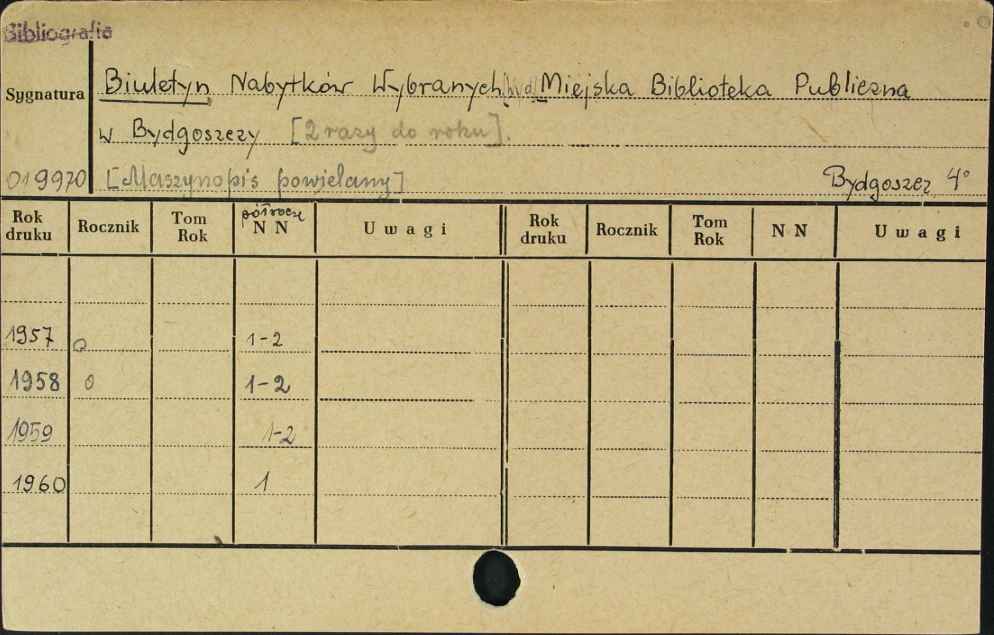 Bibliografia
Sygnatura
Biuletyn Nabytków Wybranych Miejska Biblioteka Publiczna
w Bydgoszczy [2 razy do roku].
019970 [Maszynopis powielany] Bydgoszcz 4°
Rok druku Rocznik Tom Rok półrocze N N Uwagi Rok druku Rocznik Tom Rok N N Uwagi
1957 o 1-2
1958 o 1-2
1959 1-2
1960 1